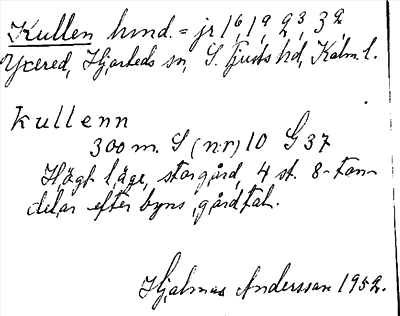 Kullen hmd. = jr 1⁶, 1⁹, 2³, 3²
Yxered, Hjorteds sn, S. Tjusts hd, Kalm. l.
kullenn
300 m. S (nr) 10 G 37
Högt läge, storgård, 4 st. 8-ton-
delar efter byns gårdtal.
Hjalmar Andersson 1952.